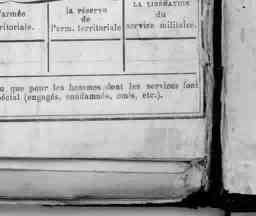 l'armée la réserve LA LIBÉRATION
de du
ritoriale. l'arm. territoriale service militaire.
que pour les hommes dont les services font
pécial (engagés, condamnés, omis, etc.).